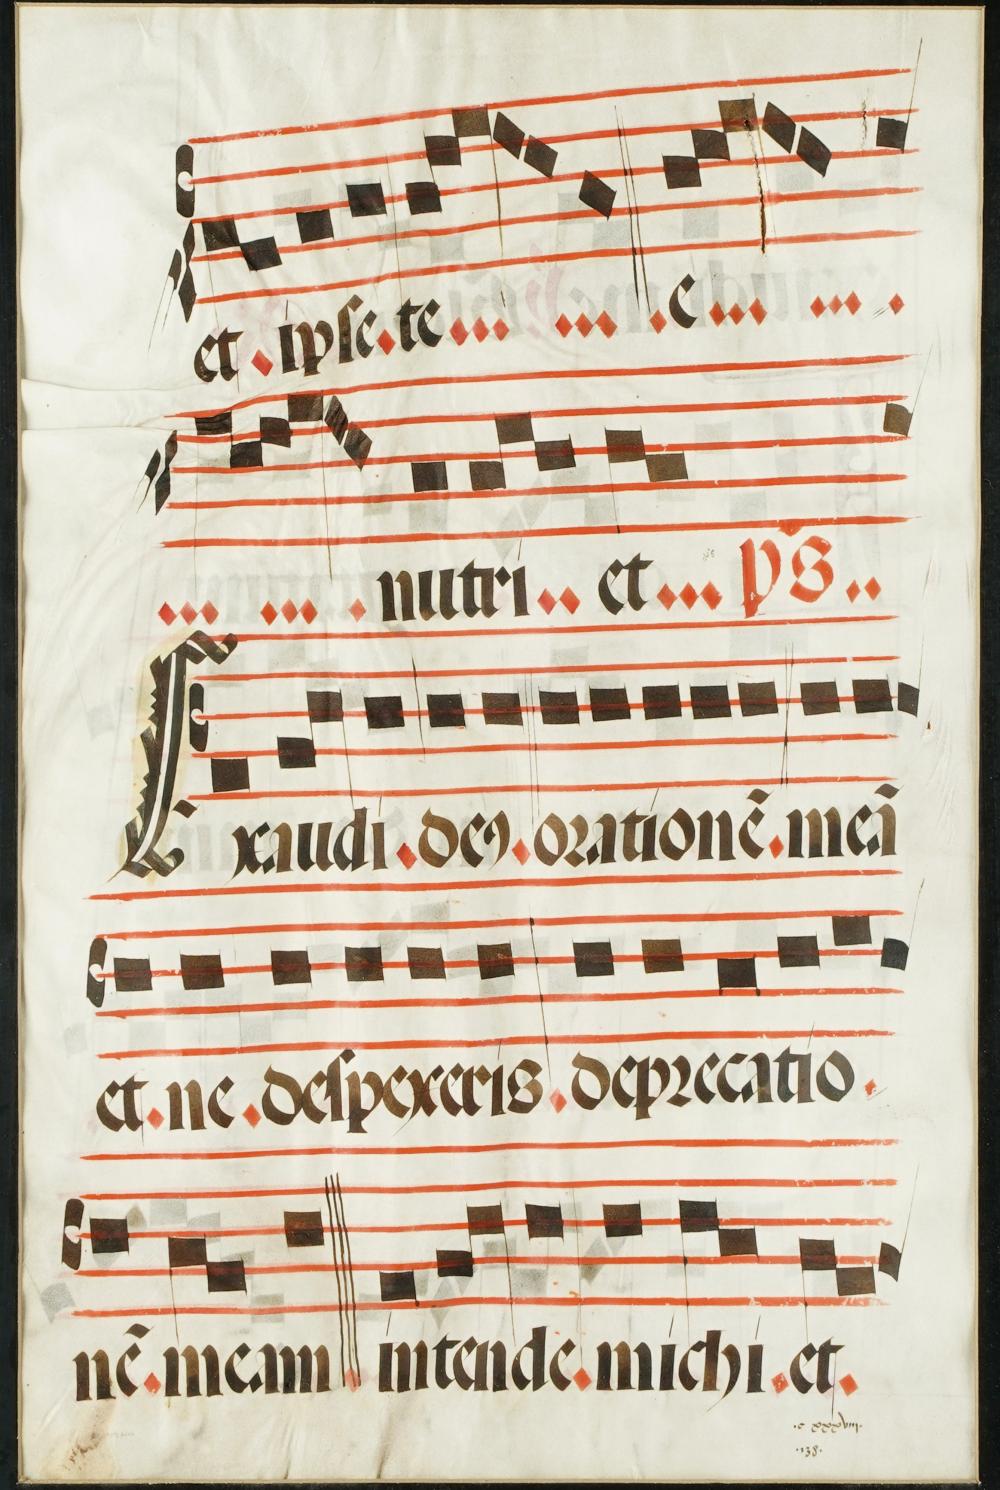 et . ipse . te . . . . . . . e . . . . . . .
. . . . . . . nutri . . et . . . p̄s . .
Exaudi . deꝰ . orationē . meā
et . ne . despexeris . deprecatio .
nē . meam . intende . michi . et .
. c xxxviii .
. 138 .